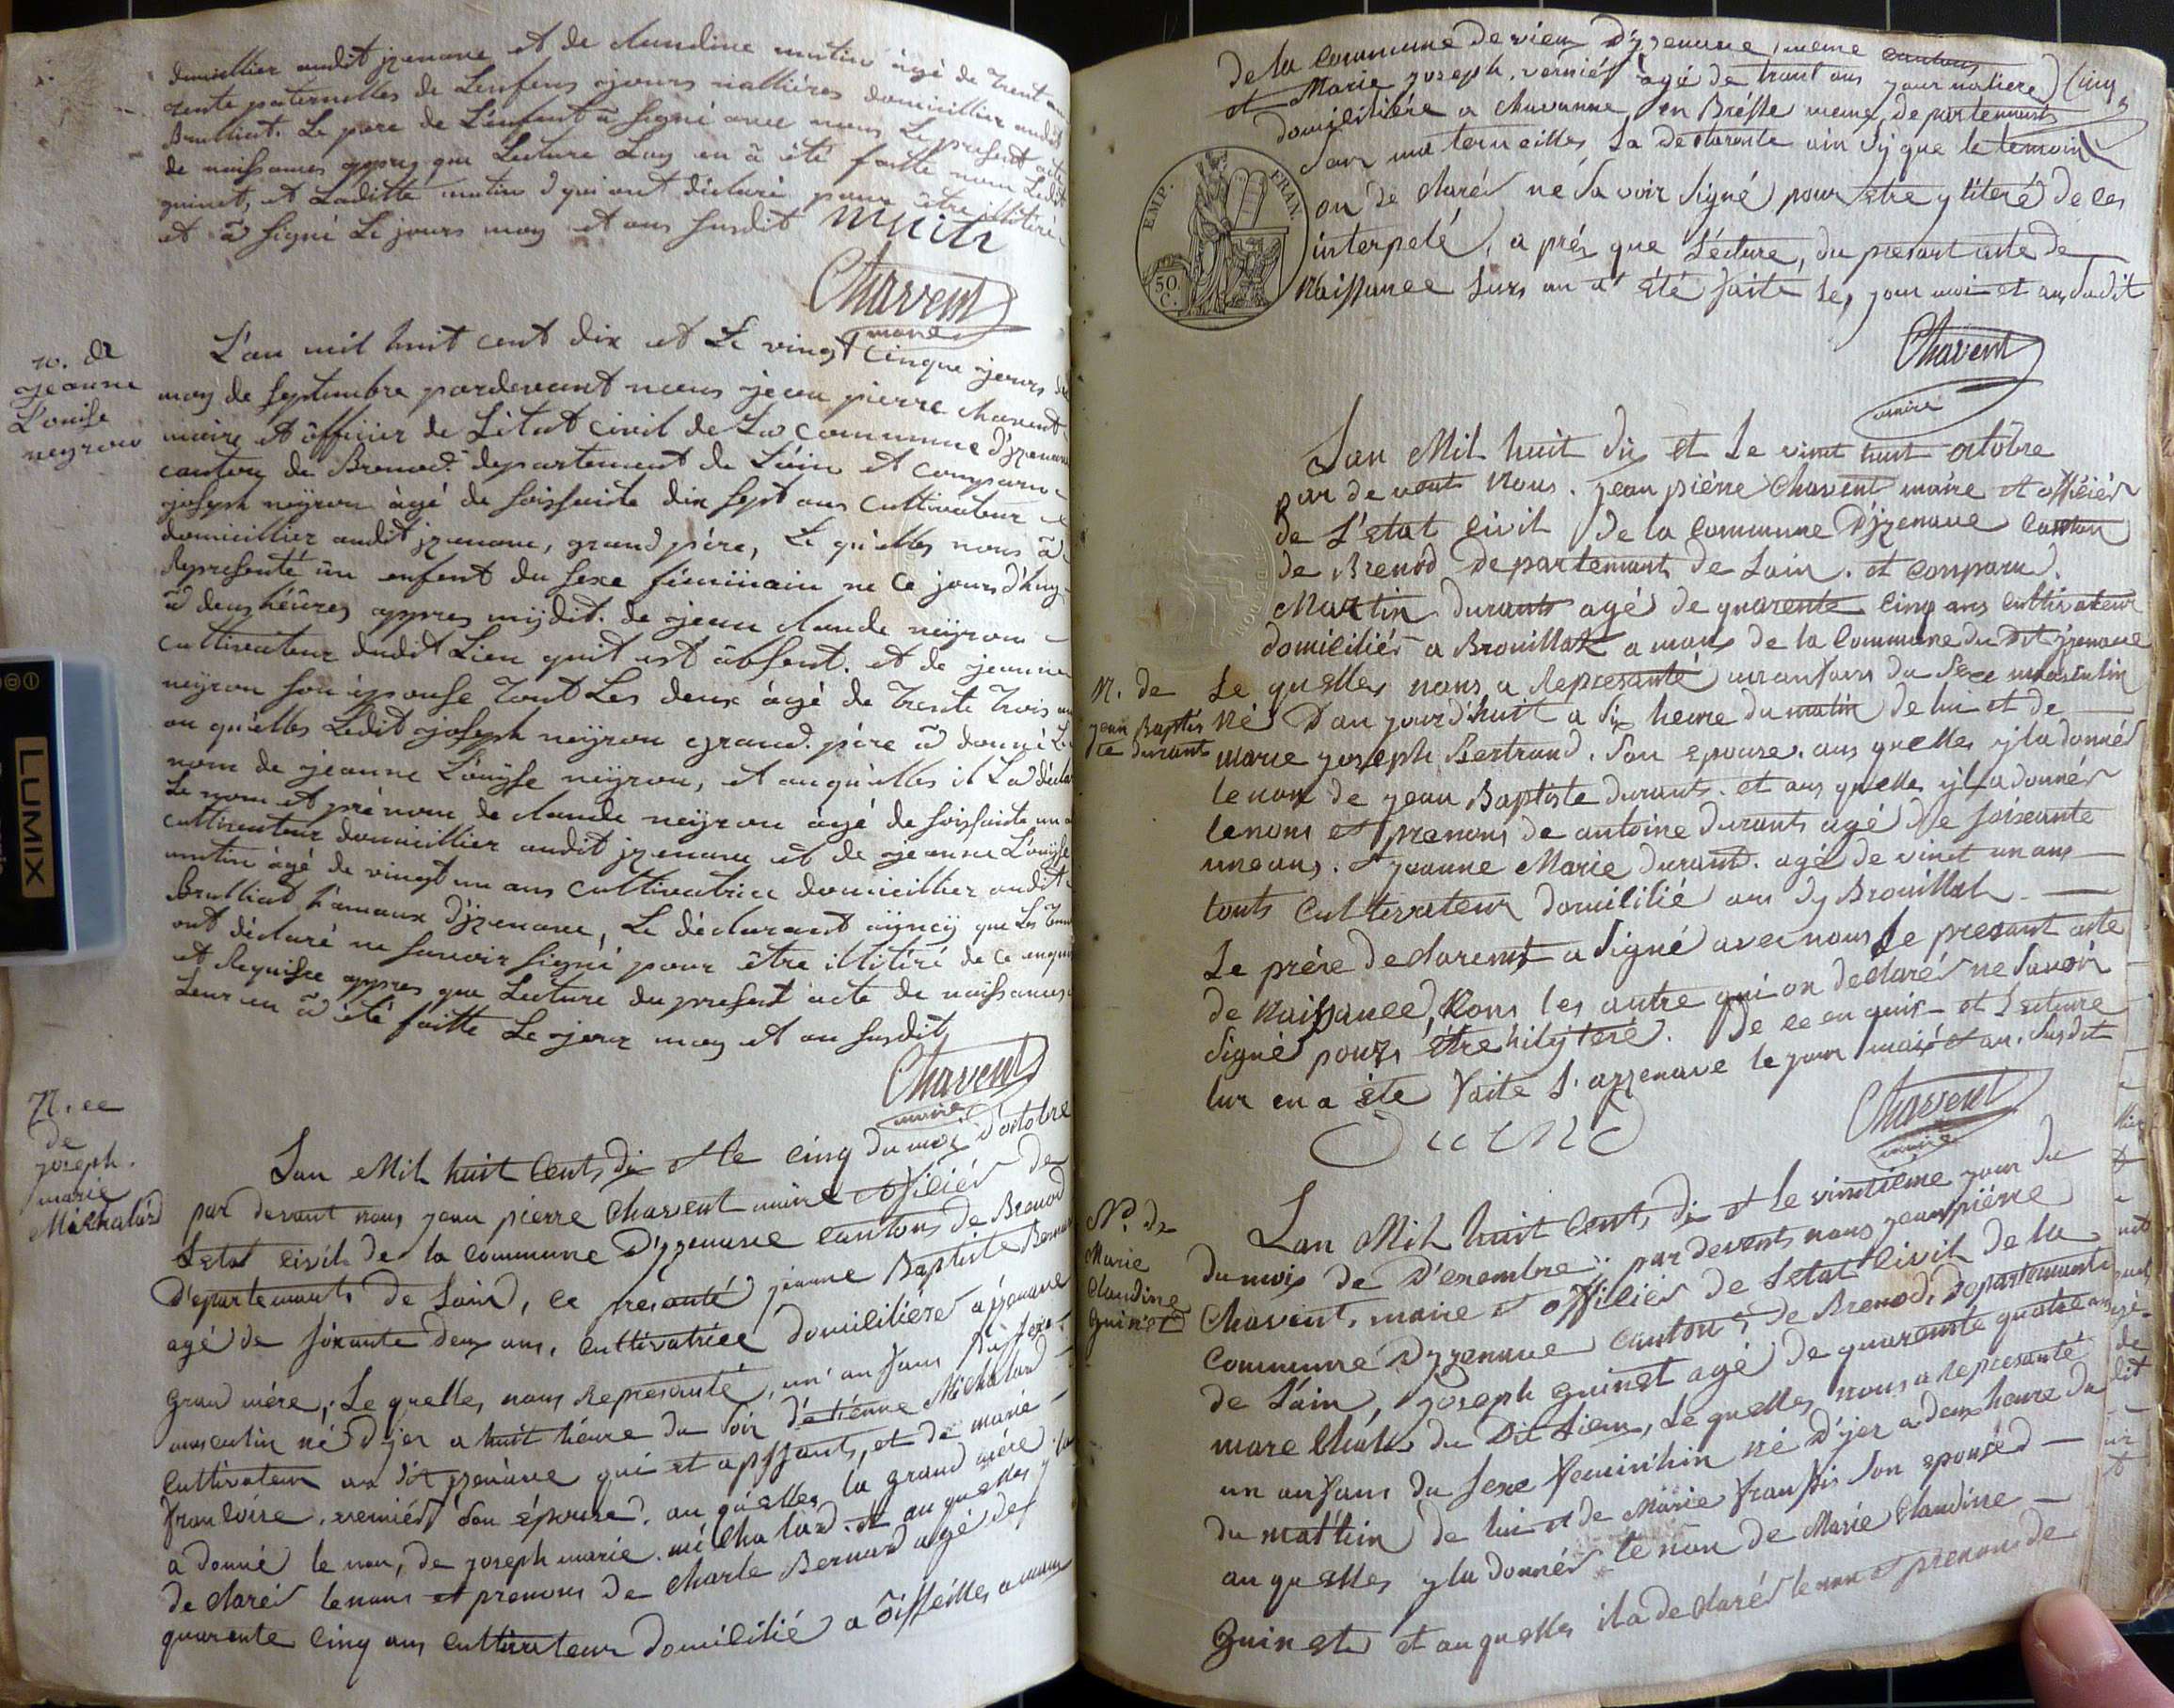 domicillier audit jzenave et de claudine mutin âgé de trent
tente paternelles de Lenfens ajours nallières domicillier audit
Brulliat. Le pere de L'enfent à signé avec nous Le present acte
de naissances appres que Lecture Luy en â été faitte non Ledit
guinet, et Laditte mutin d qui ont déclaré pour être illitiré
et â signé Le jours moy et ans susdit
Chavent
maire
n. de
jeanne
L'ouise
neyron
L'an mil huit cent dix et Le vingt cinque jours du
moy de septembre pardevant nous jean pierre chavent
maire et officier de L'état civil de La commune d'jzenave
canton de Brenod departement de L'ain et comparu
joseph neyron âgé de soissante dix sept ans cultivateur
domicillier audit jzenave, grand père, Le qu'elles nous â
Representé un enfent du sexe féminain ne ce jours d'huy
â deus héûres appres mijdit. de jean claude neÿron
cultivateur dudit Lieu quit est âbsent. et de jeanne
neyron son épouse tout Les deux âgé de trente trois
au qu'elles Ledit joseph neÿron grand père â donné Le
nom de jeanne L'ouÿse neÿron, et auqu'elles il La déclaré
Le nom et prénom de claude neÿron âgé de soissante un
cultivateur domicillier audit jzenave et de jeanne L'ouÿse
mutin âgé de vingt un ans cultivatrice domicillier audit
Brulliat hamaux d'jzenave, Le déclarant aÿncÿ que Les
ont déclaré ne savoir signé pour être illitiré de ce enquis
et Requisce appres que Lecture du present acte de naissances
Leur en â été faitte Le jour moy et an susdit
Chavent
maire
N. ee
de
joseph.
marie
Michalard
Lan Mil huit Cents di et le cinq du moi d'octobre
par devant nous jean pierre Chavent maire et officiér de
Letat civil de la commune D'yzenave cantons de Brenod
D'epartemants de Lain, ce presanté jeanne Baptiste Bernard
agé de soixante deux ans, cultivatriee domiciliére a jzenave
grand mére, Le quelles nous Representé, un' anfans Du sexe
masculin né Dÿer a huit héure du soir d'etiénne Michalard
Cultivateur au dit jzenave qui et apssants, et de marie
Francoise verniér son épouse. au quelles la grand mére
a donné le nom, de joseph marie michalard. et auquelles y la
de claré le nons et prenons de charle Bernard agé de
quarente cinq ans cultivateur domicilié a
de la Commune de vieu D'yzenave meme cantons
et Marie joseph verniér agé de trant ans jour naliere
domiciliére a chavanne en Brésse meme departemants
son ma terneilles, La declarente ain sy que le temoin
on de claré ne savoir signé pour etre y literé de ces
interpelé, a prés que Lecture, du presant acte de
Naissance Lurs an a été faite les jour moi et an sudit
EMP.
FRAN.
50.
C.
Chavent
maire
Lan Mil huit dix et Le vint huit octobre
par de vants Nous. jean piérre Chavent maire et officiér
de L'etat civil de la Commune D'jzenave Canton
de Brenod Departemants de Lain. et conparu
Martin durants agé de quarente cinq ans cultivateur
domiciliér a Brouillat a maux de la Commune du Dit jzenave
N. de
jean Baptis
te durant
Le quelles nous a Represanté un anfans du sexe masculin
Né D'au jourd'huit a six heure du matin de lui et de
marie joseph Bertrand. son epouse. aus quelles y la donnér
le non de jean Baptiste durants. et aus quelles y la donnér
le nons et prenons de antoine durants agé de soixante
une ans. et jeanne Marie durant. agé de vint un ans
touts cultivateur domicilié aus Dy Brouillat
Le prére declarent a signé avec nous Le presant acte
de Naissance, Nons les autre qui on declarér ne savoir
signé pours être hilytéré. De ce en quis et Lecture
lur en a éte Faite L'ayzenave le jour mois et an. susdit
Chavent
maire
N.º de
Marie
Claudine
Guinet
Lan Mil huit Cents di et le vintiéme jour du
du mois de D'esembre par devants nous jean piérre
Chavent. maire et officiér de Letat Civil de la
Commune Dyzenave Canton de Brenod, Departemants
de L'ain, joseph guinet agé de quarente quatre ans
mare Chals du Dit Lieu, Le quelles nous a Represanté
un anfans du sexe Feminihin né D'jer a deux heure du
du mattin de lui et de Marie Fransois son epouse
au quelles y la donnér le non de Marie Claudine
Guinet et au quelles il a declarér le non et prenon de
LUMIX